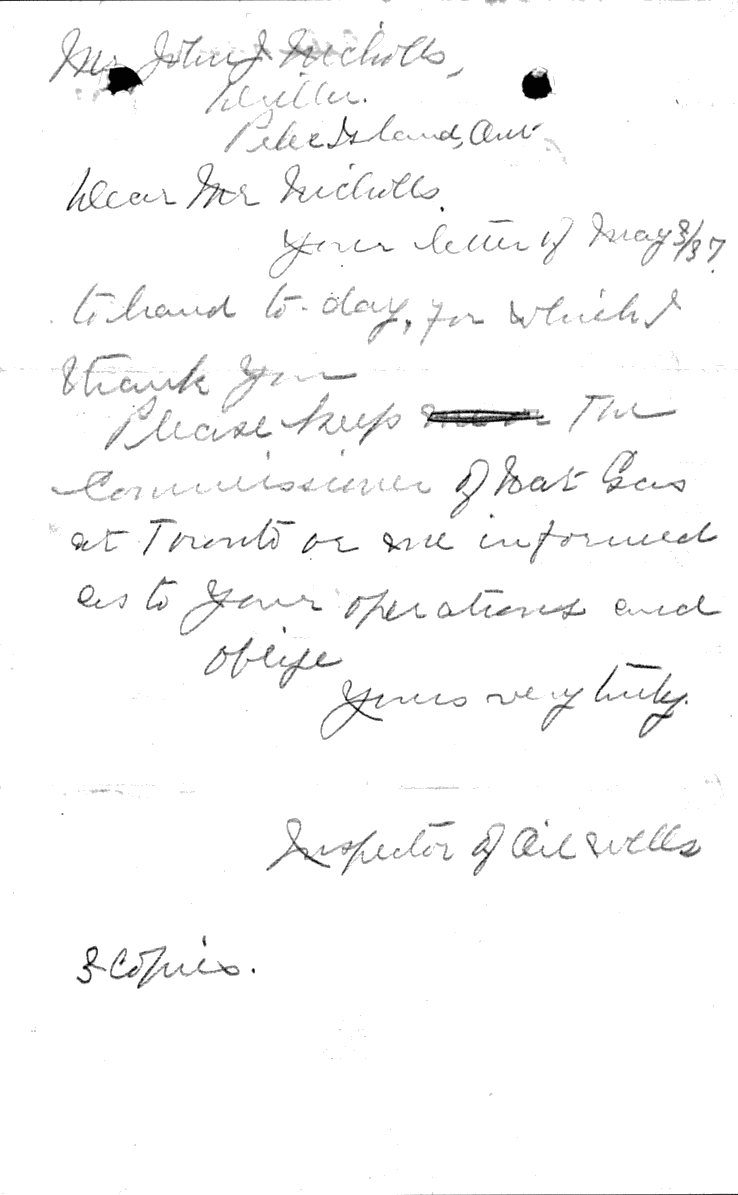 Mr John J Nicholls,
Driller.
Pelee Island, Ont
Dear Mr Nicholls.
Your letter of May 3/37
to hand to-day, for which I
thank you
Please keep The
Commissioner of Nat Gas
at Toronto or me informed
as to your operations and
oblige
Yours very truly.
Inspector of Oil Wells
3 Copies.